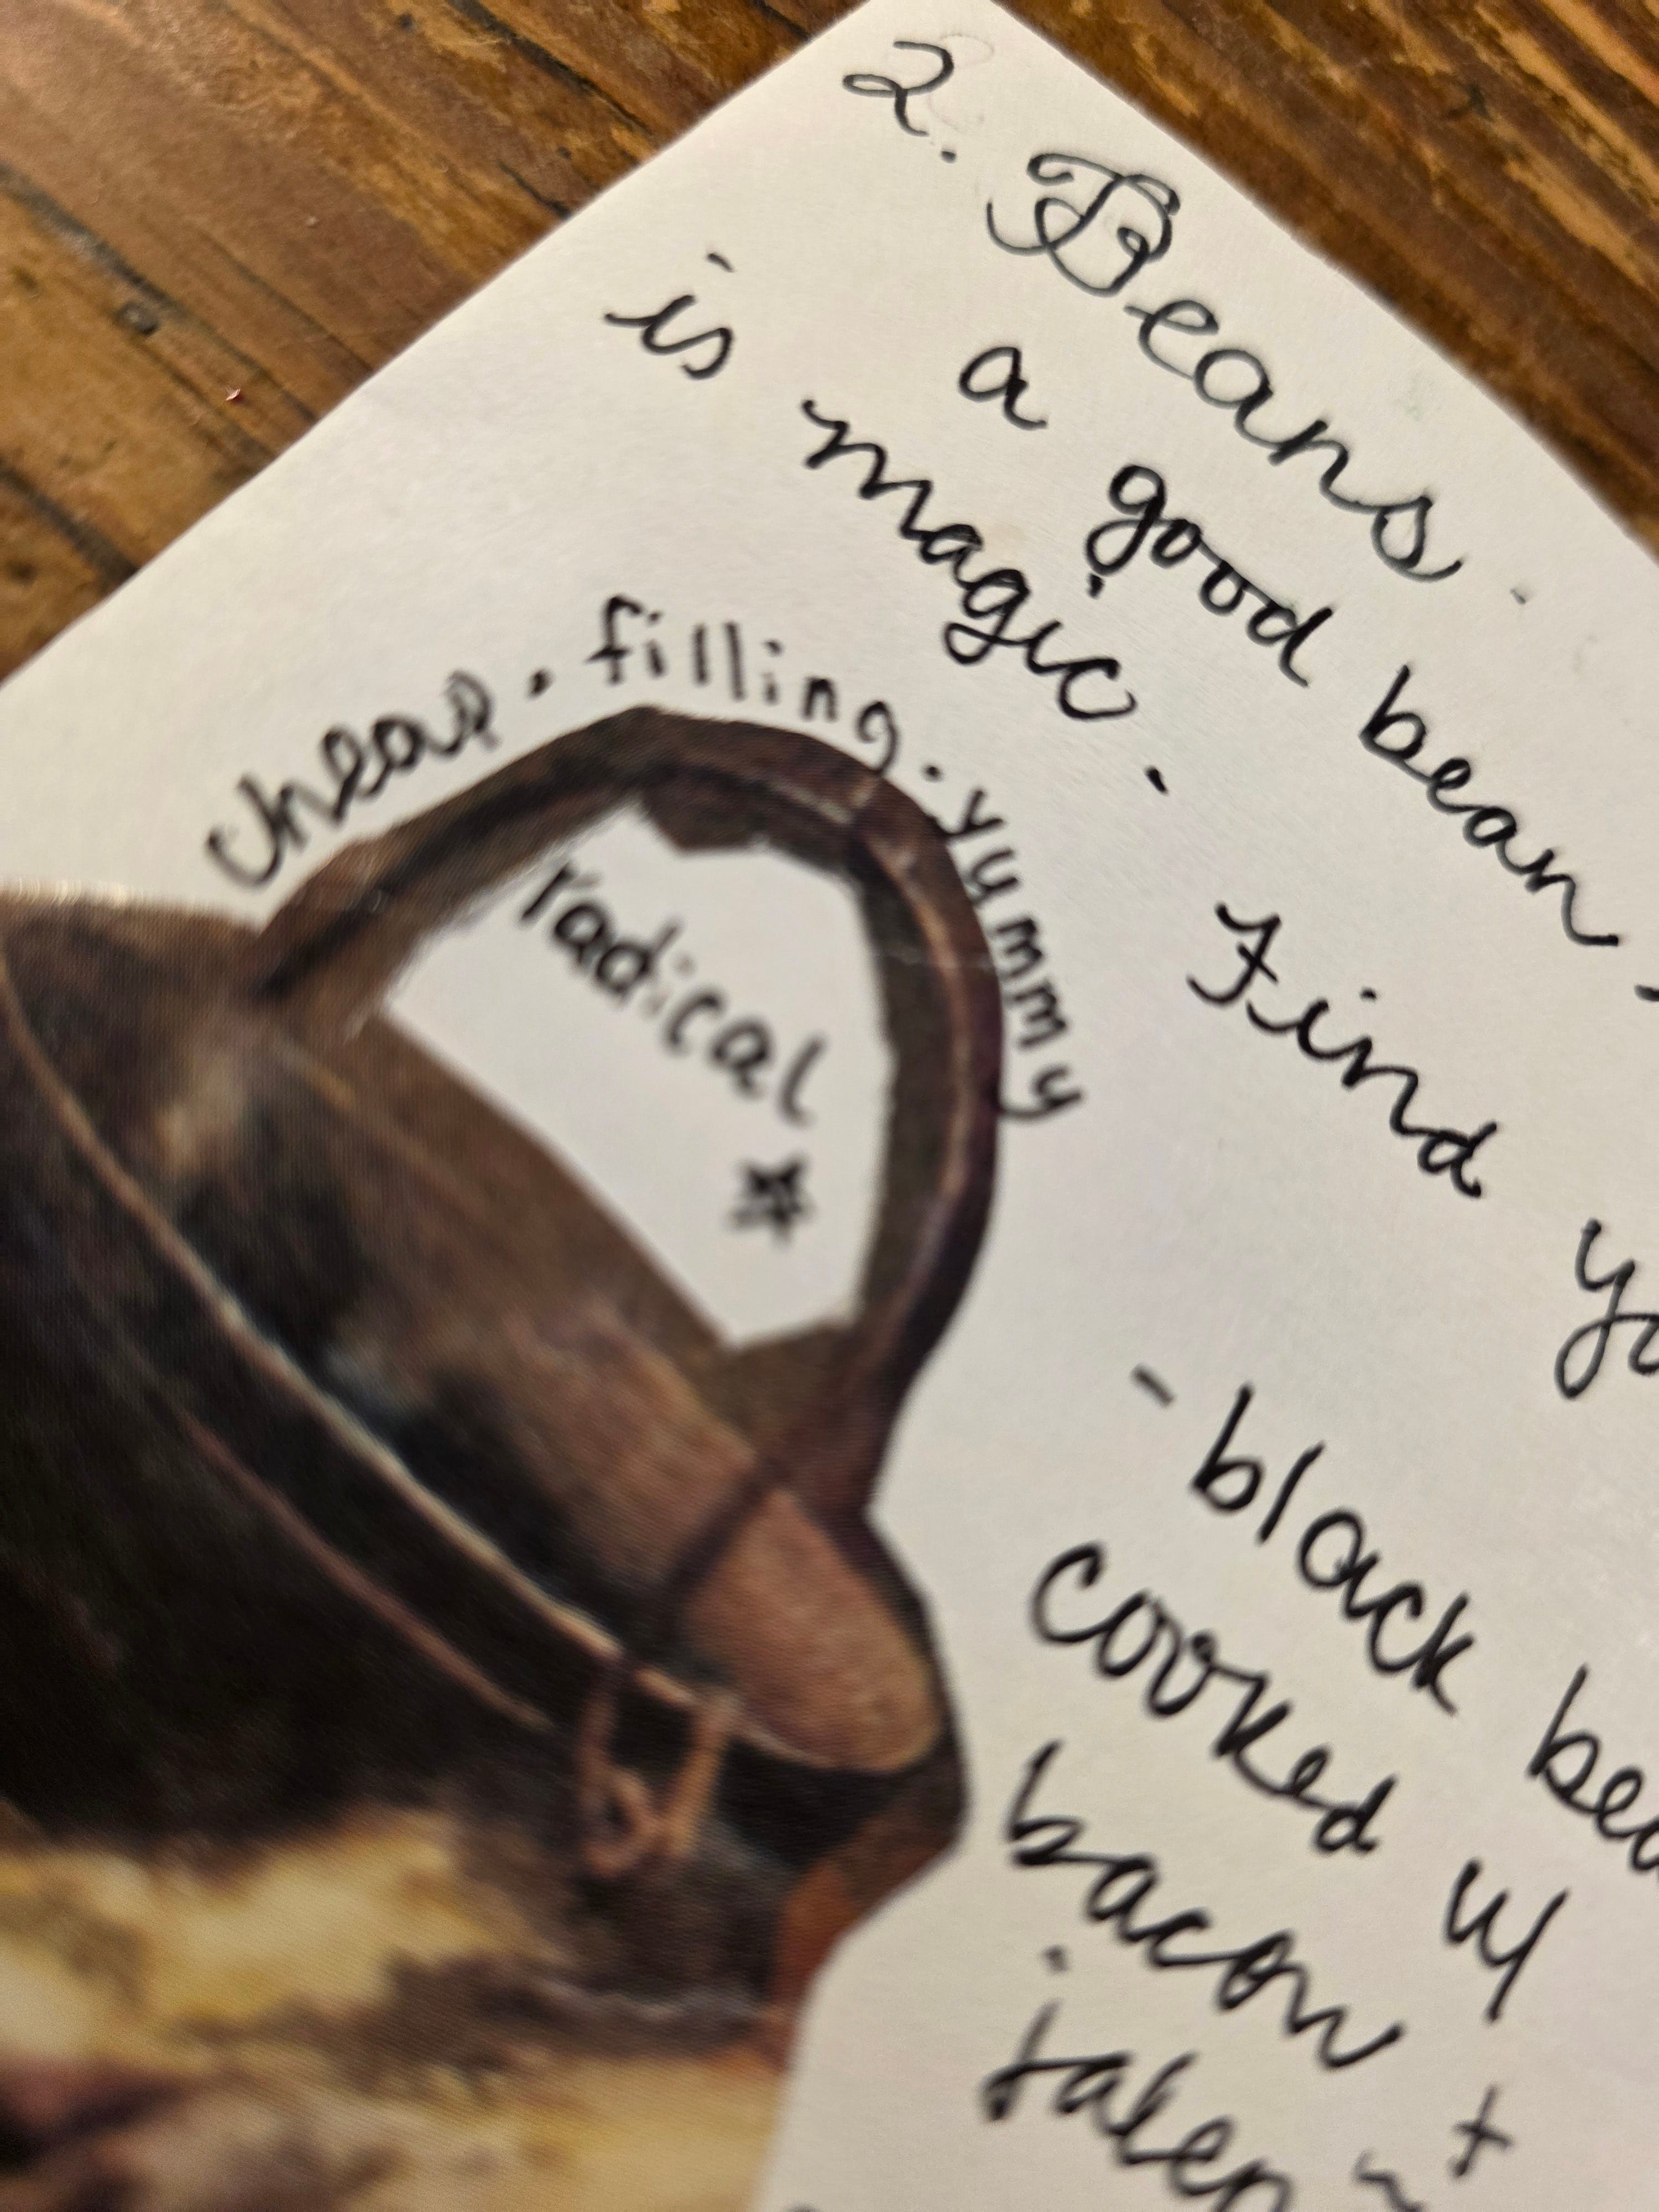 2. Beans.
a good bean
is magic. Find
cheap. filling. yummy
radical
- black
cooked w/
bacon +